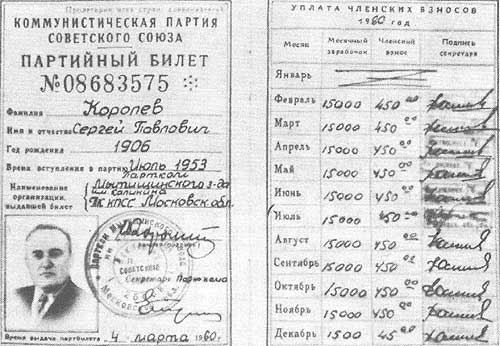 Пролетарии всех стран, соединяйтесь!
КОММУНИСТИЧЕСКАЯ ПАРТИЯ
СОВЕТСКОГО СОЮЗА
ПАРТИЙНЫЙ БИЛЕТ
№08683575
Фамилия Королев
Имя и отчество Сергей Павлович
Год рождения 1906
Время вступления в партию Июль 1953
Партком
Наименование организации, выдавшей билет Мытищинского з-да
им. Калинина
ГК КПСС Московск. обл.
Секретарь Парткома
Время выдачи партбилета 4 марта 1960г.
УПЛАТА ЧЛЕНСКИХ ВЗНОСОВ
1960 ГОД
Месяц Месячный заработок Членский взнос Подпись секретаря
Январь
Февраль 15000 450 00
Март 15000 450 00
Апрель 15000 450 00
Май 15000 450 00
Июнь 15000 450 00
Июль 15000 450 00
Август 15000 450 00
Сентябрь 15000 450 00
Октябрь 15000 450 00
Ноябрь 15000 450 00
Декабрь 1500 45 00